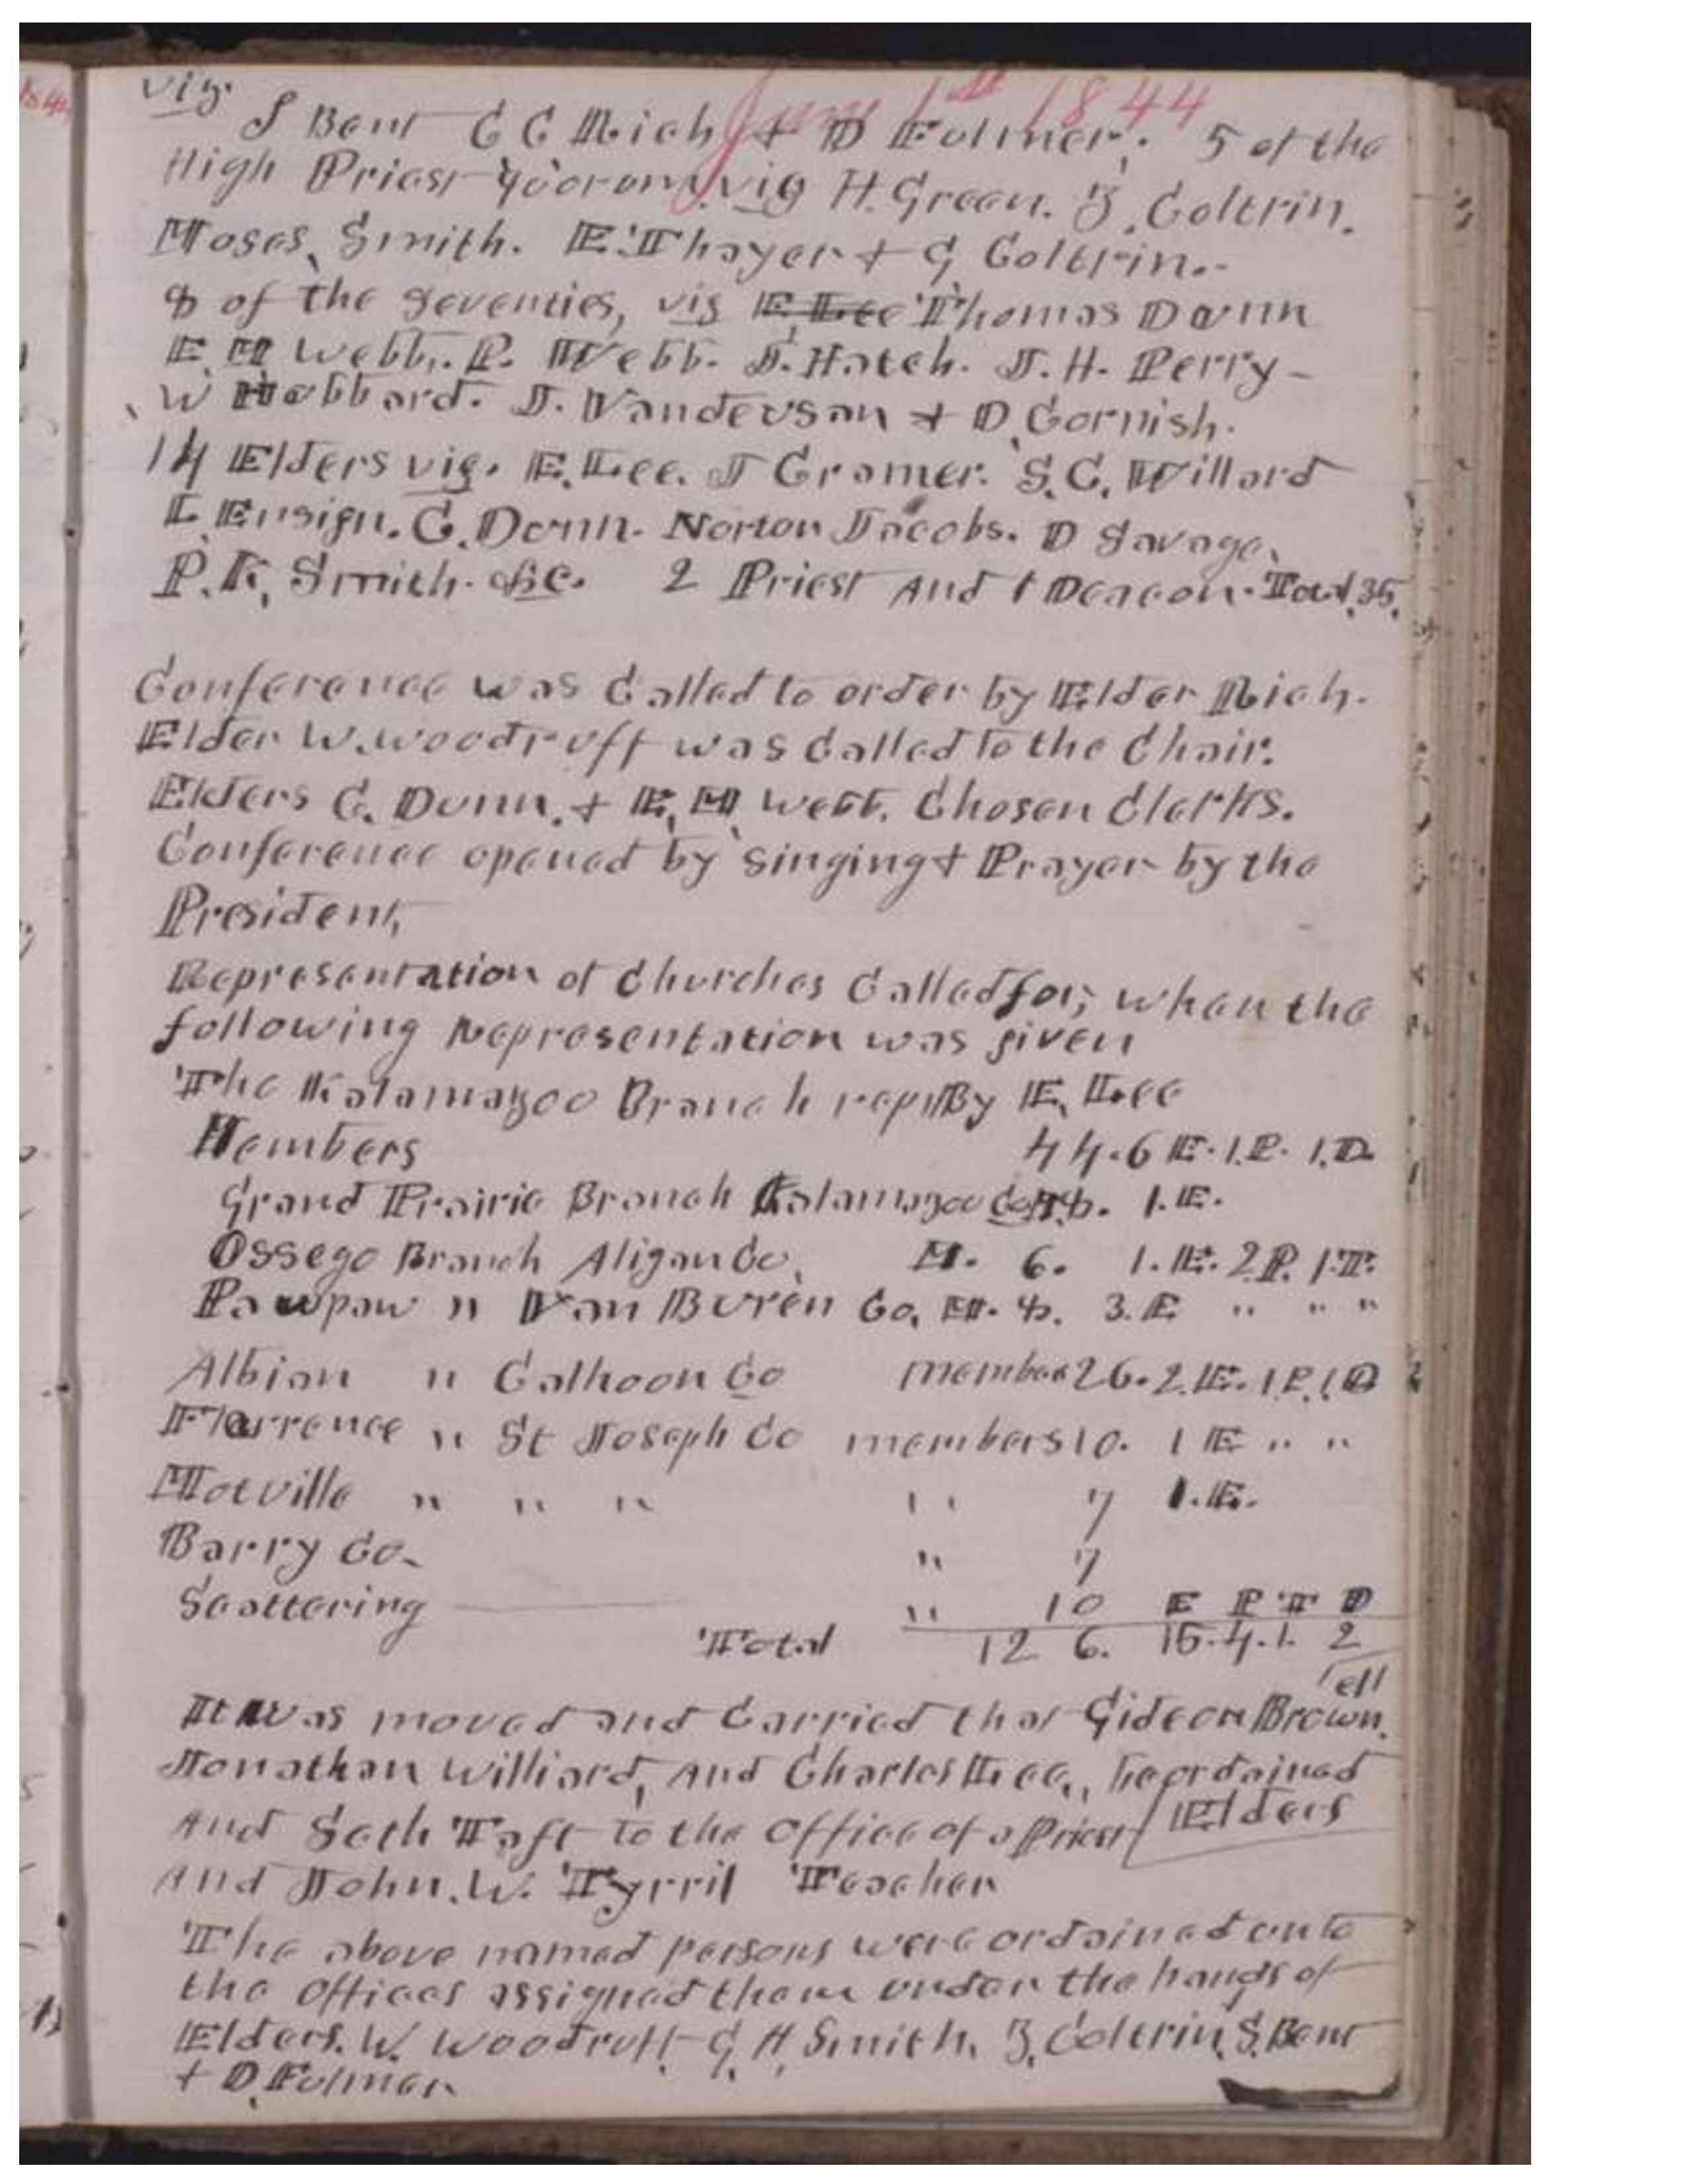 June 1st 1844
viz.
S Bent C C Rich & D Fulmer; 5 of the
High Priest quorum viz H. Green. Z. Coltrin.
Moses Smith. E. Thayer & G Coltrin.-
8 of the seventies, viz E Lee Thomas Dunn
E. M Webb. P. Webb. I. Hatch. J. H. Perry-
W Hubbard. J. Vandeusan & D. Cornish.
14 Elders viz. E. Lee. J Cramer. S. C. Willard
L Ensign. C. Dunn. Norton Jacobs. D Savage.
P. K. Smith. &c. 2 Priest And 1 Deacon. Total. 35.
Conference was Called to order by Elder Rich.
Elder W. Woodruff was Called to the Chair.
Elders C. Dunn. & E. M. Webb. Chosen Clerks.
Conference opened by singing & Prayer by the
President,
Representation of Churches Called for; when the
following Representation was given
The Kalamazoo Branch rep. By E. Lee
Members 44. 6 E. 1. P. 1. D.
Grand Prairie Branch Kalamazoo Co. 8. 1. E.
Ossego Branch Aligan Co. M. 6. 1. E. 2 P. 1. T.
Pawpaw " Van Buren Co. M. 8. 3. E " " "
Albion " Calhoon Co member 26. 2. E. 1 P. 1 D
Florrence " St Joseph Co members 10. 1 E " "
Motville " " " " 7 1. E.
Barry Co. " 7
Scattering " 10 E P T D
Total 12 6. 15. 4. 1. 2
ell
It was moved and Carried that Gideon Brown.
Jonathan Williard, And Charles Lee., be ordained
Elders
And Seth Taft to the Office of a Priest
And John. W. Tyrril Teacher
The above named persons were ordained unto
the Offices assigned them under the hands of
Elders. W. Woodruff G. A. Smith. Z. Coltrin. S. Bent
& D. Fulmer.